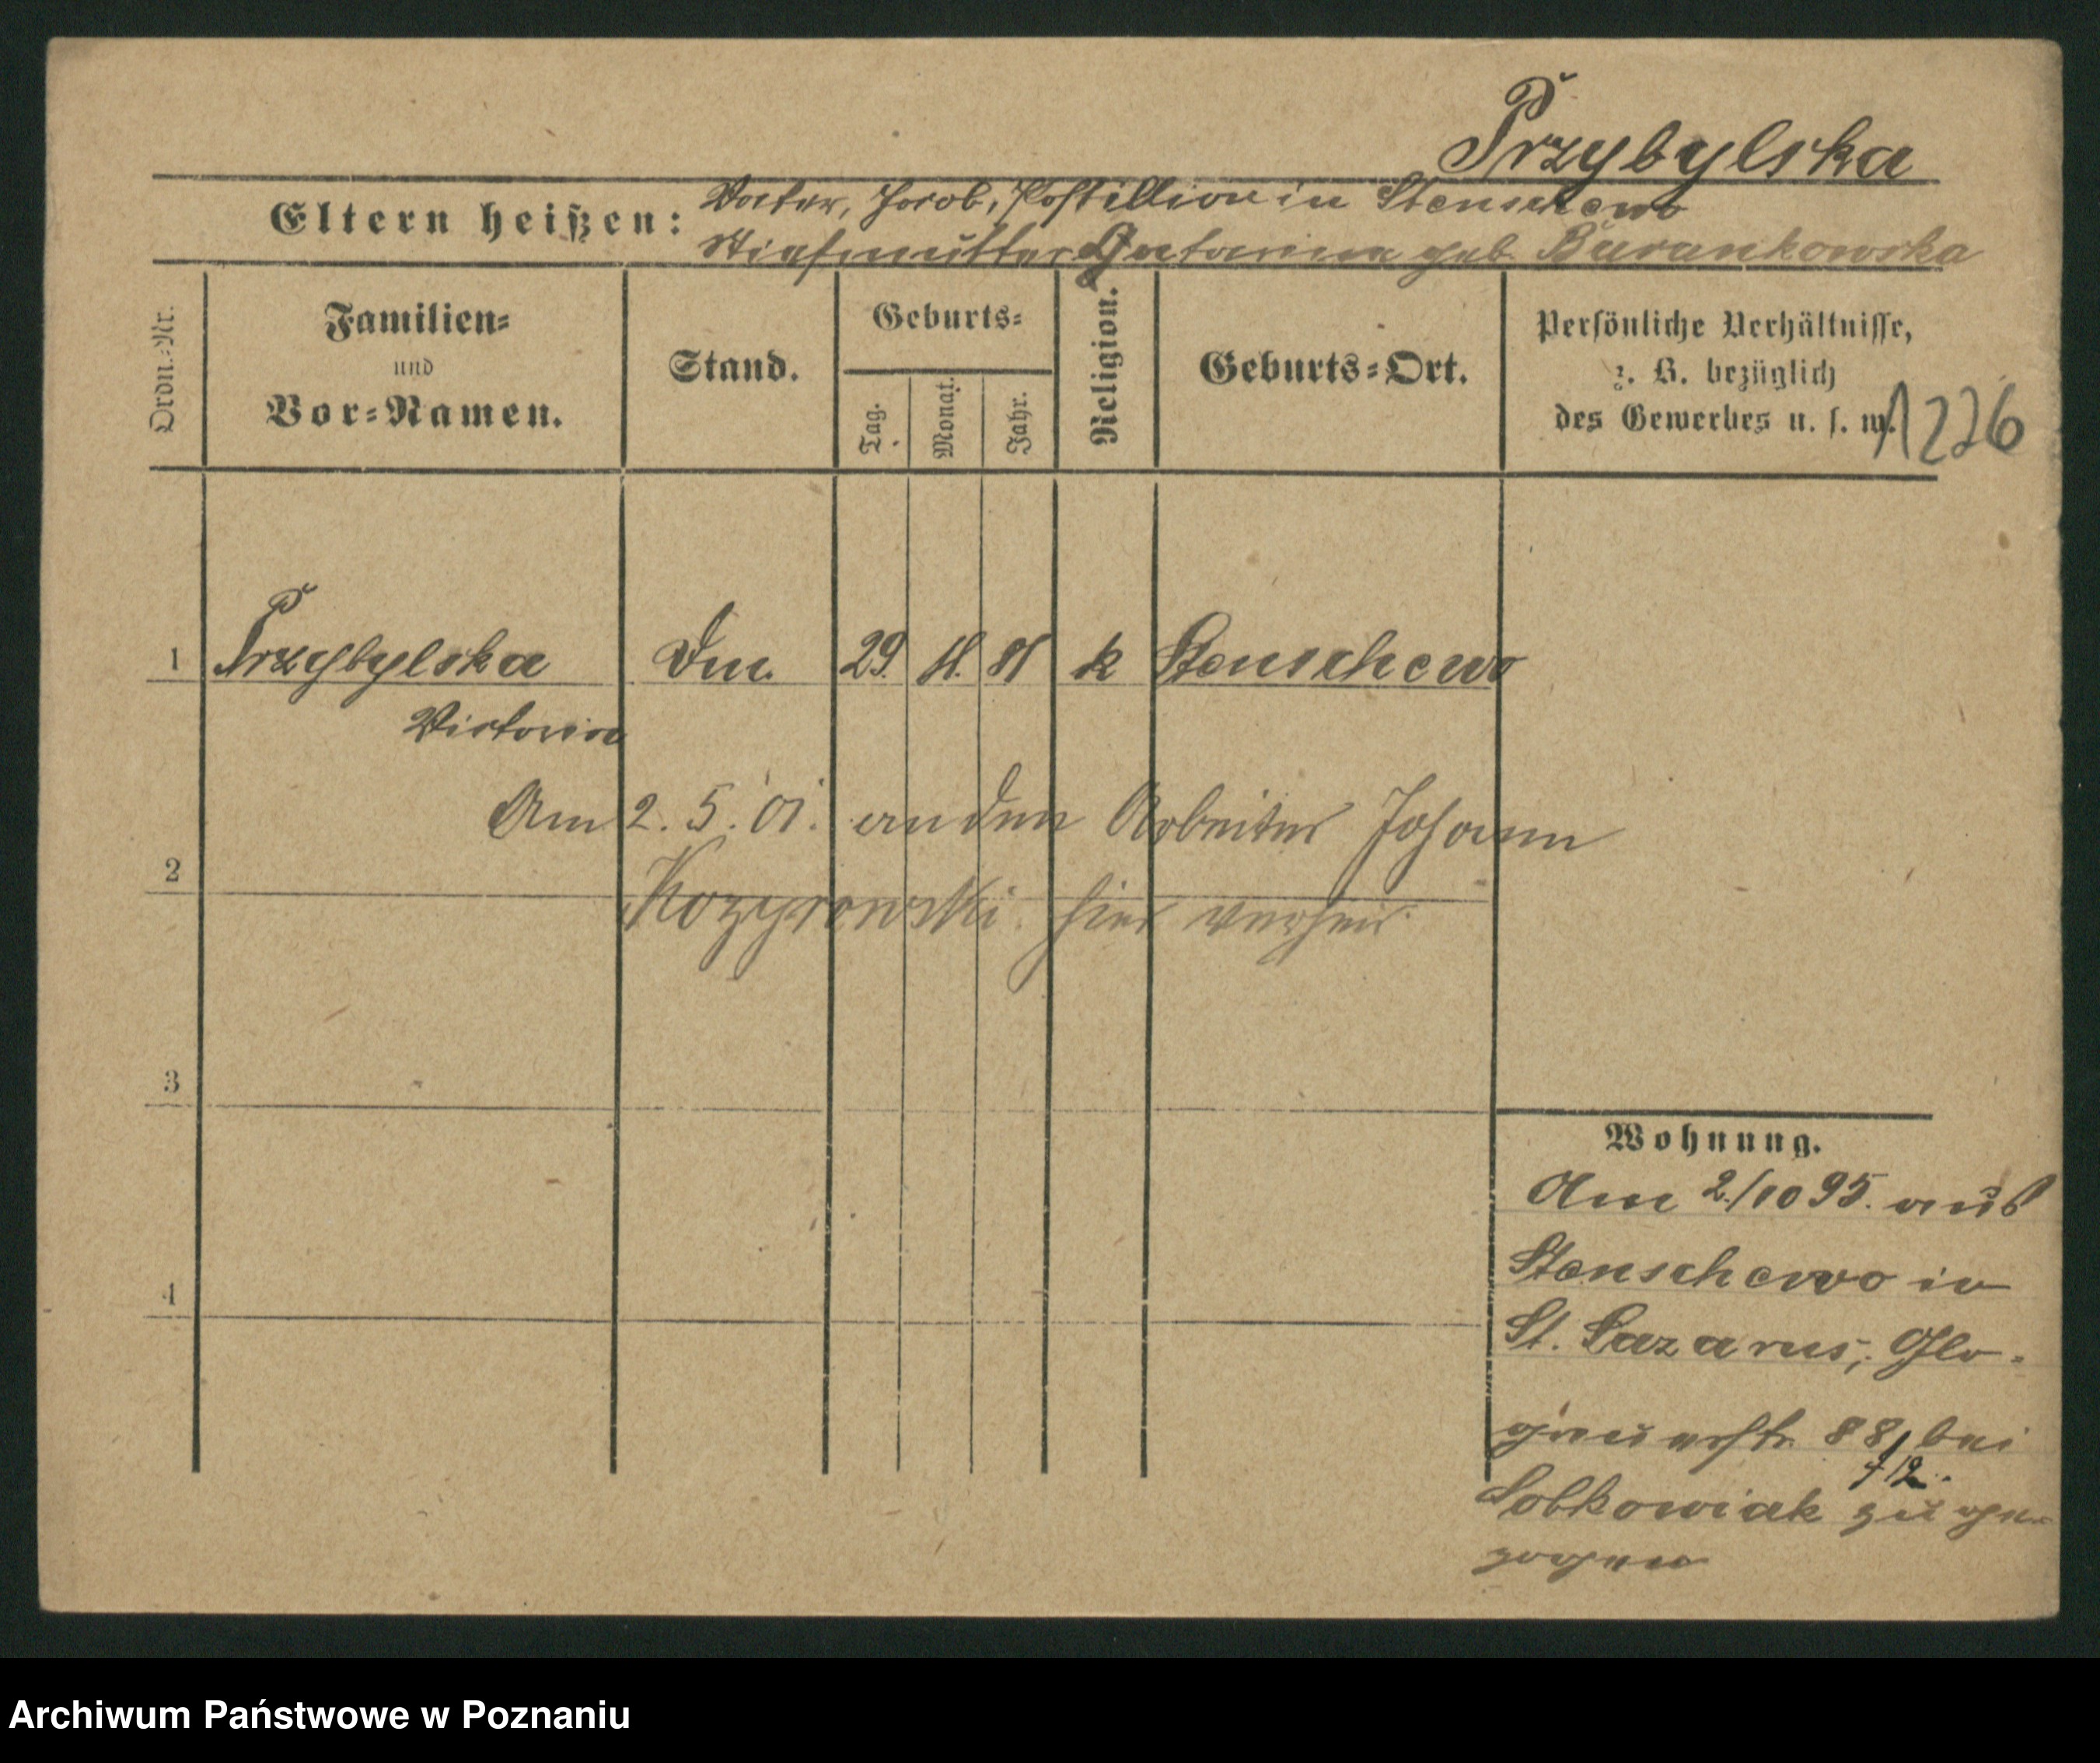 Przybylska
Eltern heißen: Vater, Jacob, Postillion in Stenschewo
Stiefmutter geb. Burankowska
Ordn.=Nr.
Familien=
und
Vor=Namen.
Stand.
Geburts=
Tag.
Monat.
Jahr.
Religion.
Geburts=Ort.
Persönliche Verhältnisse,
z. B. bezüglich
des Gewerbes u. s. w.
1226
1 Przybylska 29. 81 k Stenschewo
Victoria
Am 2. 5. 01. an den Arbeiter Johann
2
Kozyrowski hier verheir.
3
4
Wohnung.
Am 2/10 95. aus
Stenschewo in
St. Lazarus, Glo-
gauerstr. 88, bei
Sobkowiak zuge-
zogen
Archiwum Państwowe w Poznaniu